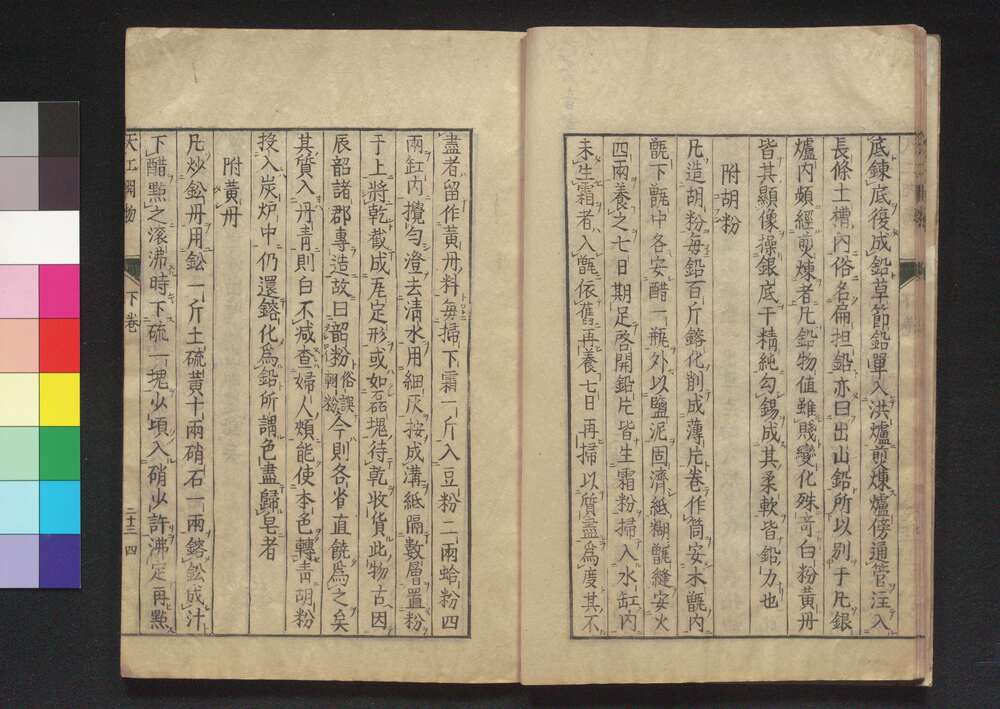 底鍊底復成鉛草節鉛單入洪爐煎煉爐傍通管注入
長條土槽內俗名扁担鉛亦曰出山鉛所以別于凡銀
爐內頻經煎煉者凡鉛物值雖賤變化殊竒白粉黃丹
皆其顯像操銀底于精純勾錫成其柔軟皆鉛力也
附胡粉
凡造胡粉每鉛百斤鎔化削成薄片卷作筒安木甑內
甑下甑中各安醋一瓶外以鹽泥固濟紙糊甑縫安火
四兩養之七日期足啓開鉛片皆生霜粉掃入水缸內
未生霜者入甑依舊再養七日再掃以質盡爲度其不
盡者留作黃丹料每掃下霜一斤入豆粉二兩蛤粉四
兩缸內攪勻澄去清水用細灰按成溝紙隔數層置粉
于上將乾截成瓦定形或如磊塊待乾收貨此物古因
辰韶諸郡專造故曰韶粉俗誤朝粉今則各省直饒爲之矣
其質入丹青則白不减查婦人頰能使本色轉青胡粉
投入炭炉中仍還鎔化爲鉛所謂色盡歸皂者
附黃丹
凡炒鉛丹用鉛一斤土硫黃十兩硝石一兩鎔鉛成汁
下醋㸃之滾沸時下硫一塊少頃入硝少許沸定再㸃
天工開物 下卷 二十三 四